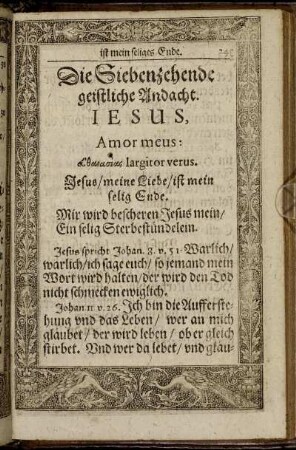 ist mein seliges Ende.
Die Siebenzehende
geistliche Andacht.
IESUS,
Amor meus:
largitor verus.
Jesus/meine Liebe/ist mein
selig Ende.
Mir wird bescheren Jesus mein/
Ein selig Sterbestündelein.
Jesus spricht Johan. 8. v. 51. Warlich/
warlich/ich sage euch/ so jemand mein
Wort wird halten/der wird den Tod
nicht schmecken ewiglich.
Johan. 11. v. 26. Ich bin die Aufferste-
hung vnd das Leben/ wer an mich
gläubet/ der wird leben/ ob er gleich
stürbet. Vnd wer da lebet/ vnd gläu-